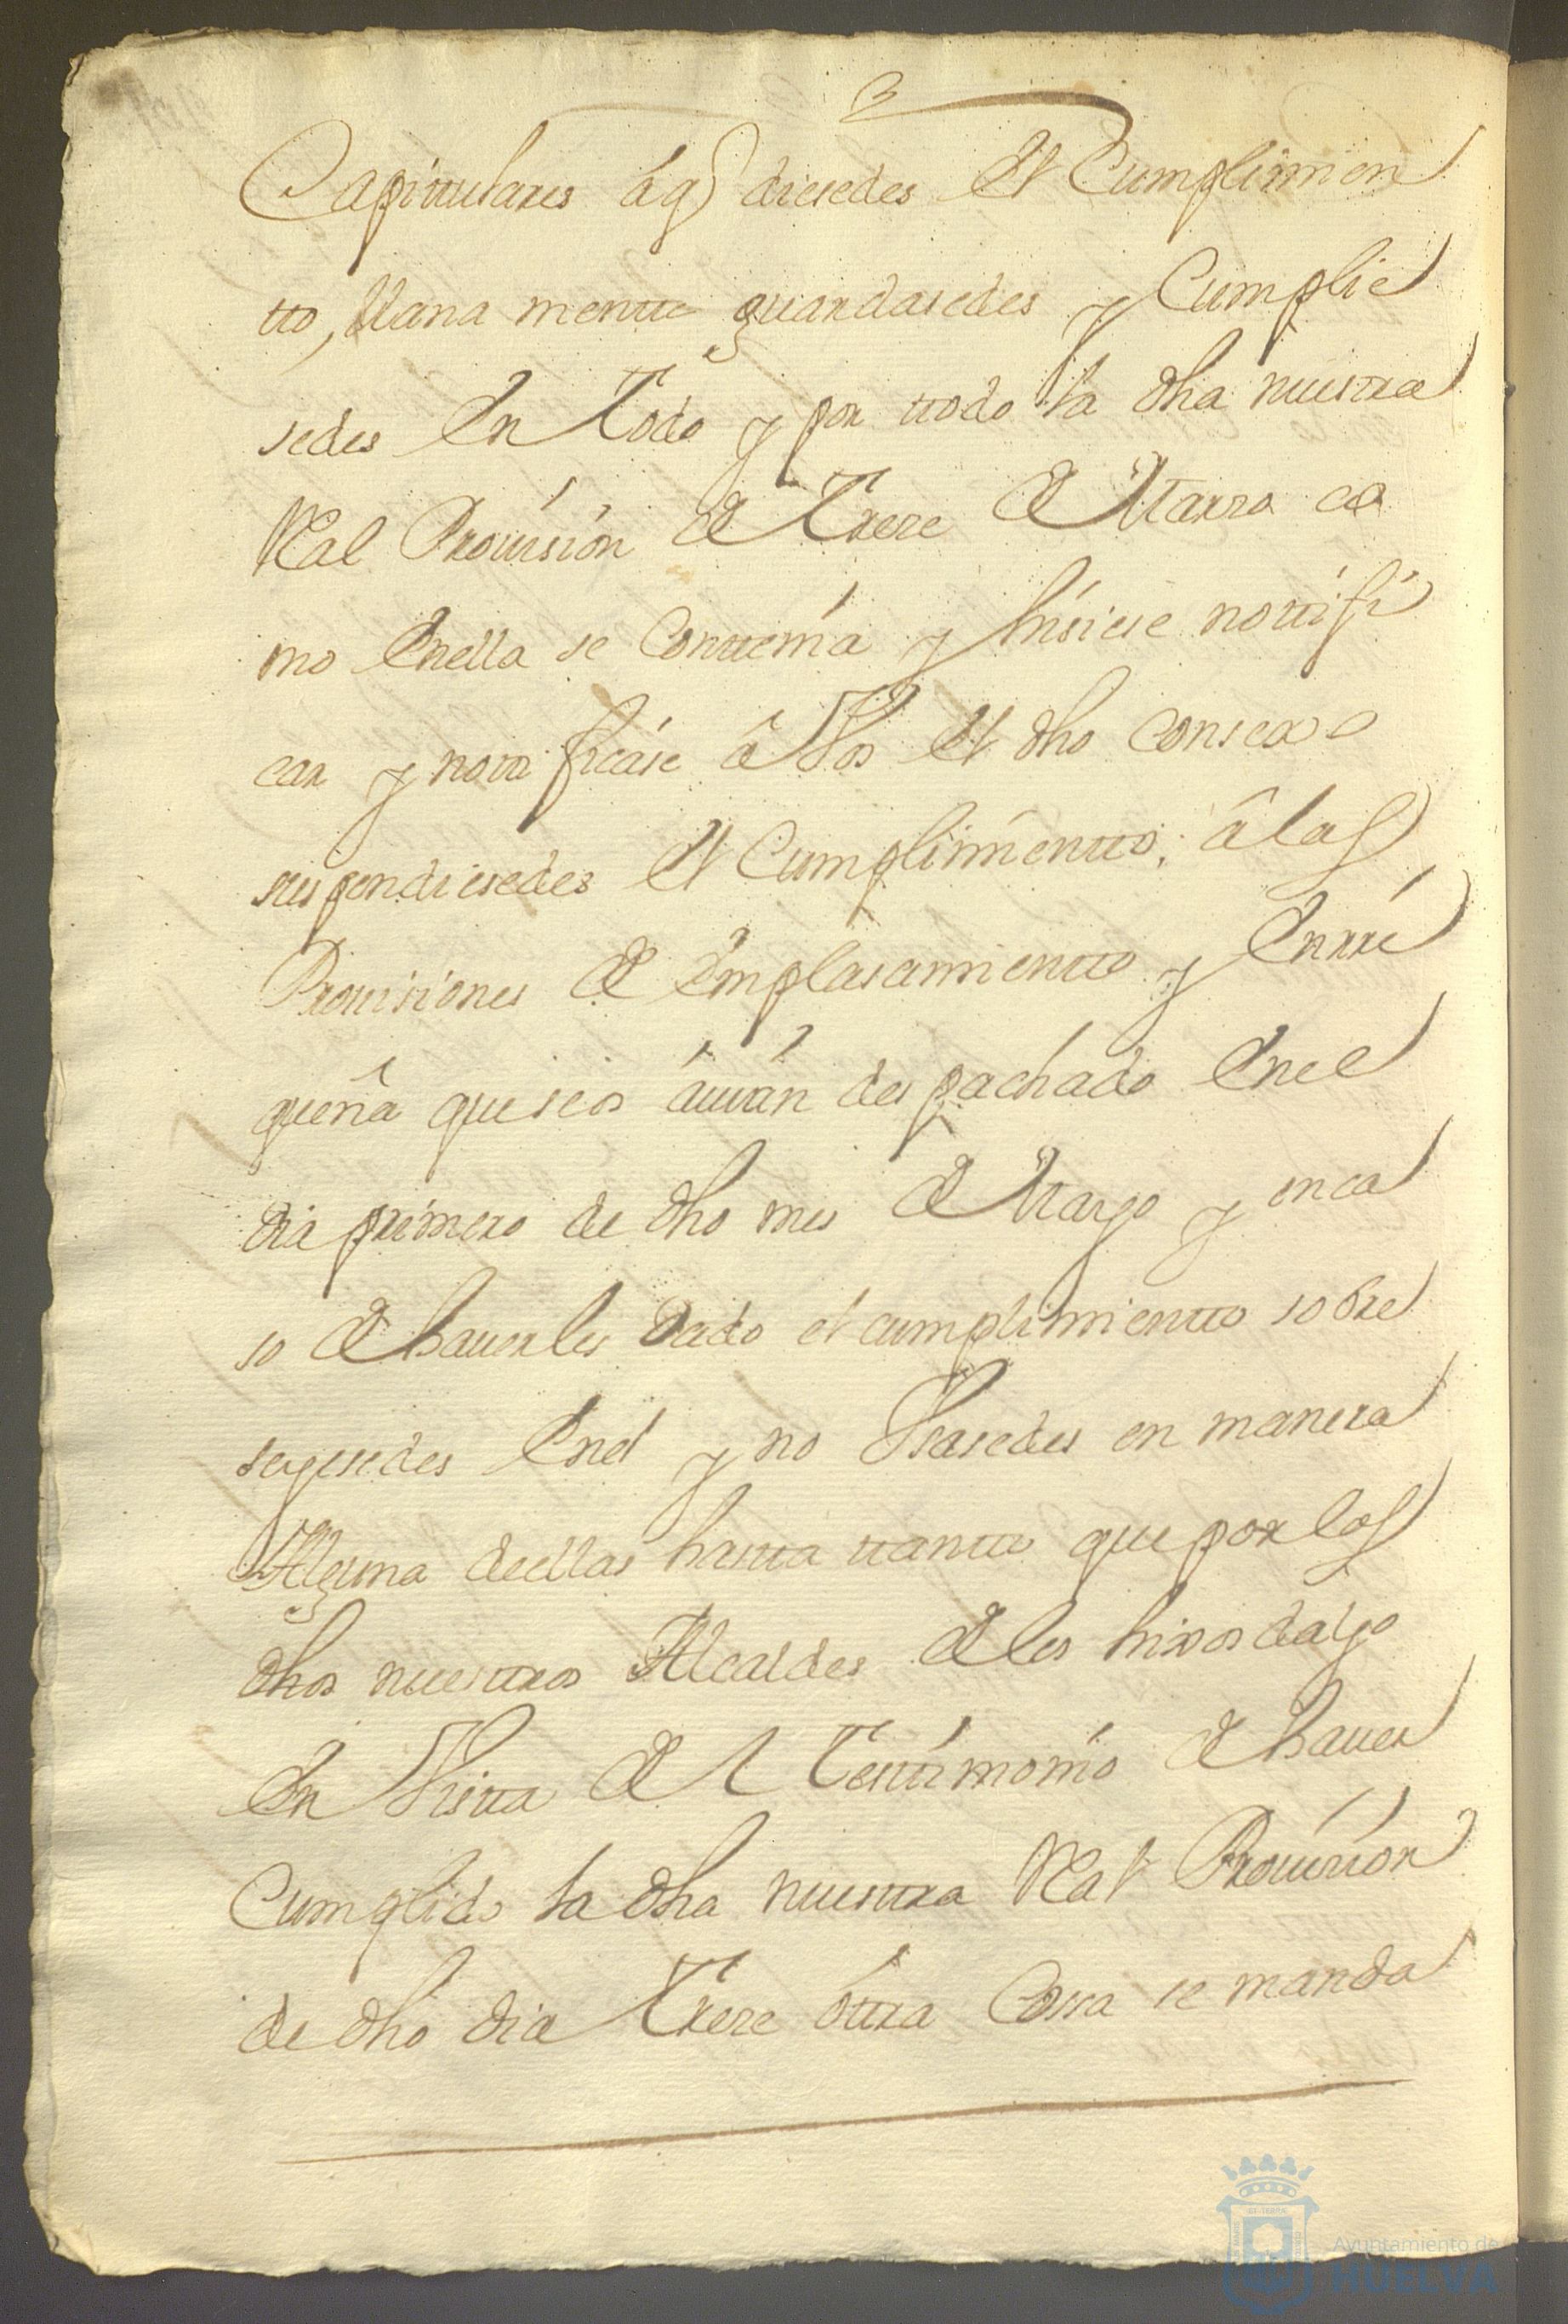 Capitulares aq diesedes el Cumplimien
tto, llana mentte guardasedes y Cumplie
sedes En Todo y por ttodo la dha nuestra
Real Provision de Treze de Marzo co
mo Enella se Conttenia y hisiese nottifi
car y notificase â Vos el dho Consexo
suspendiesedes el Cumplimientto, â las
Provisiones de Emplasamientto y Enrri
queña que seos auian despachado Enel
dia primero de dho mes de Mayo y enca
so de hauerles Dado el cumplimientto sobre
seyesedes Enel y no Vsasedes en manera
Alguna deellas hastta ttantto que por los
dhos nuesttros Alcaldes de los hixosdalgo
En Vistta de el Testtimonio de hauer
Cumplido la dha nuesttra Real Provision
de dho dia Treze ôttra Cossa se manda
Ayuntamiento de
HUELVA